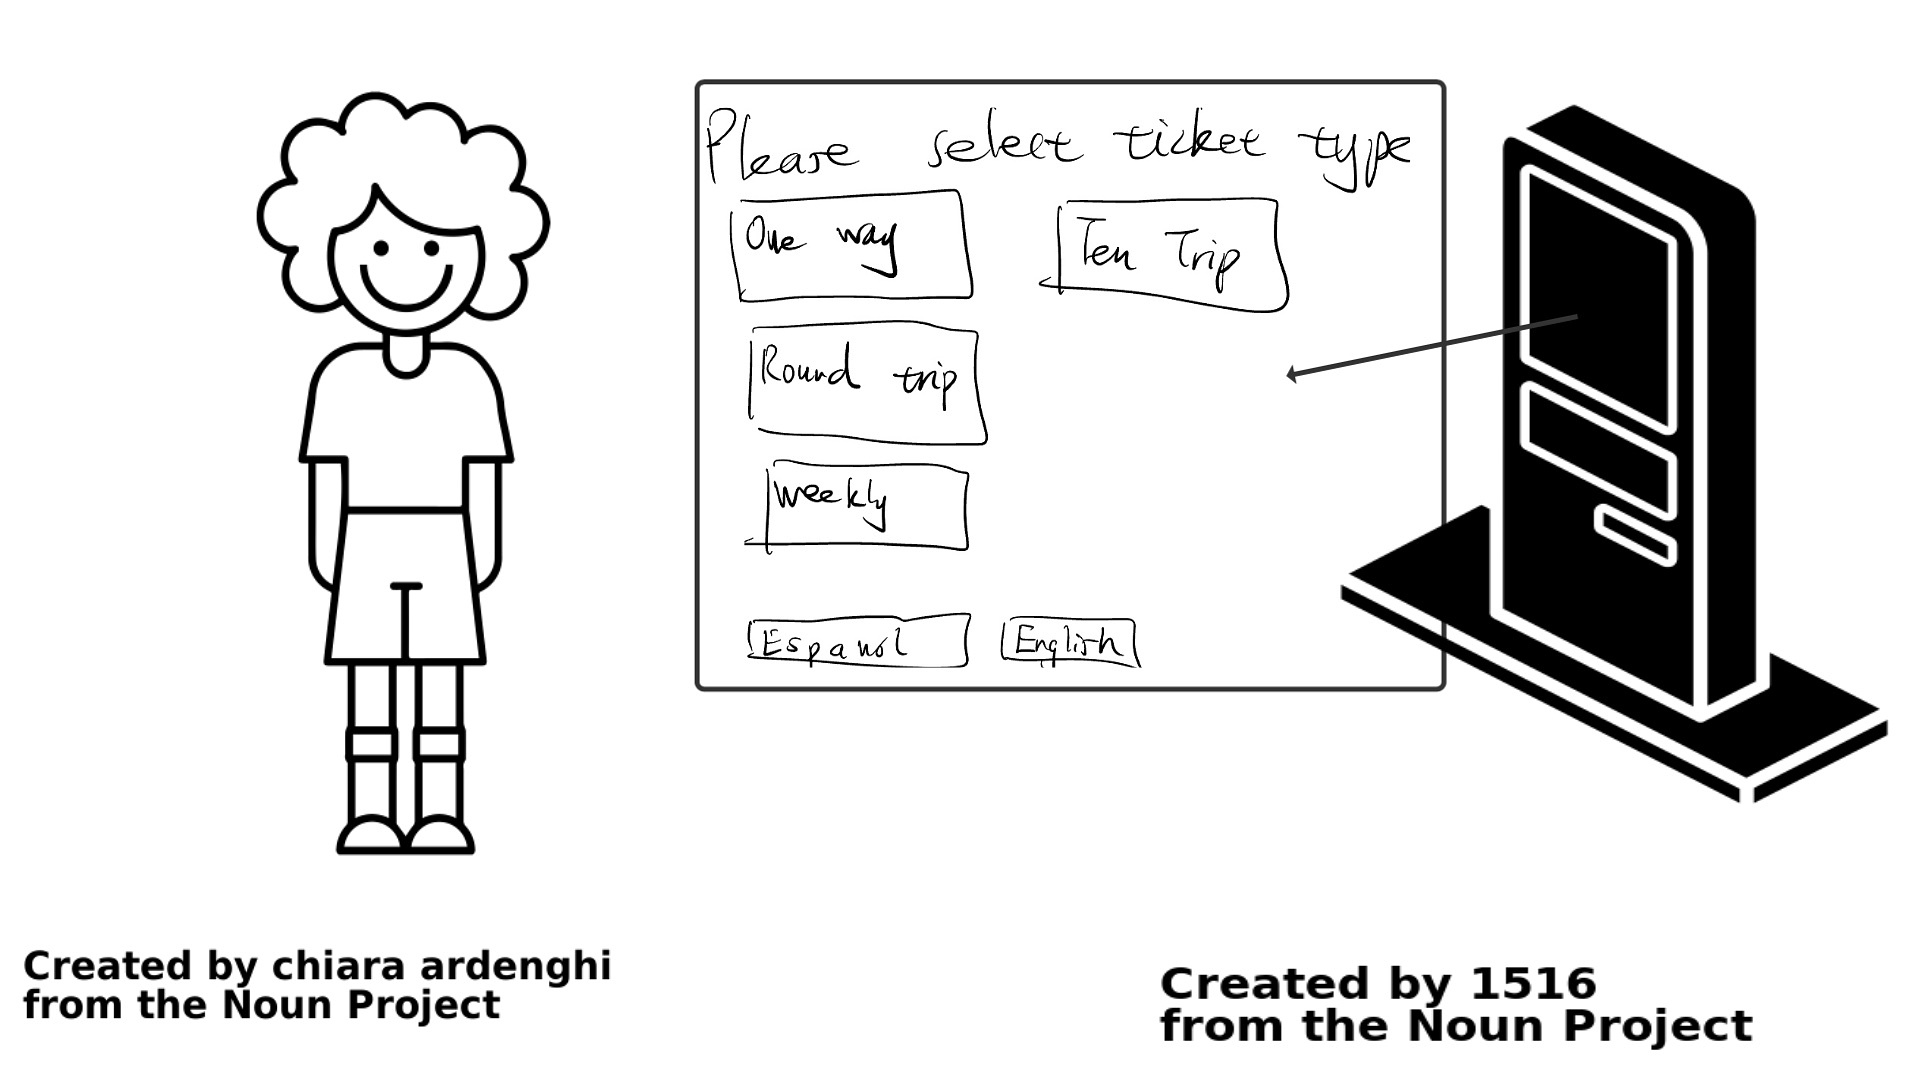 Please select ticket type
One way
Ten Trip
Round trip
weekly
Espanol
English
Created by chiara ardenghi
from the Noun Project
Created by 1516
from the Noun Project